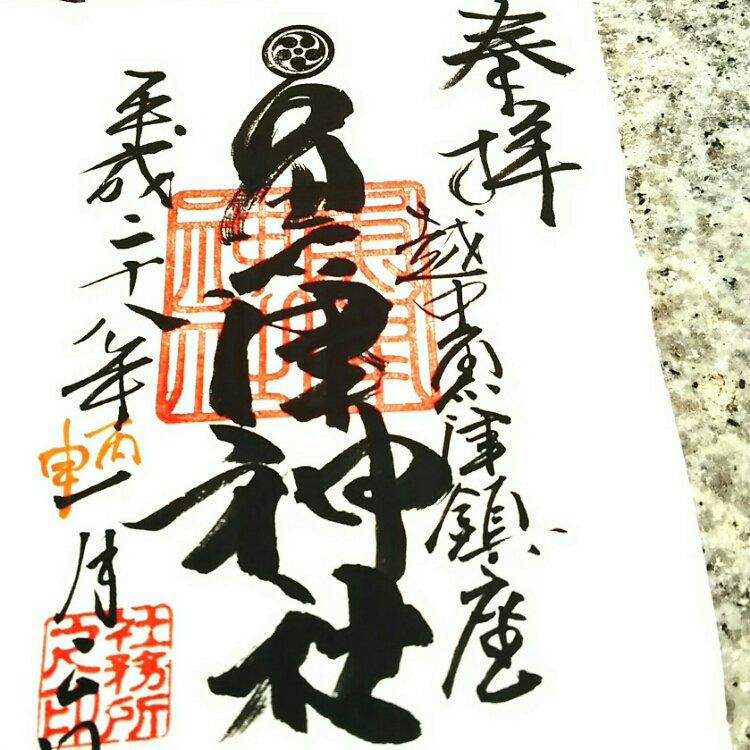 奉拝
越中魚津鎮座
魚津神社
平成二十八年
丙申
一月
社務所
之印